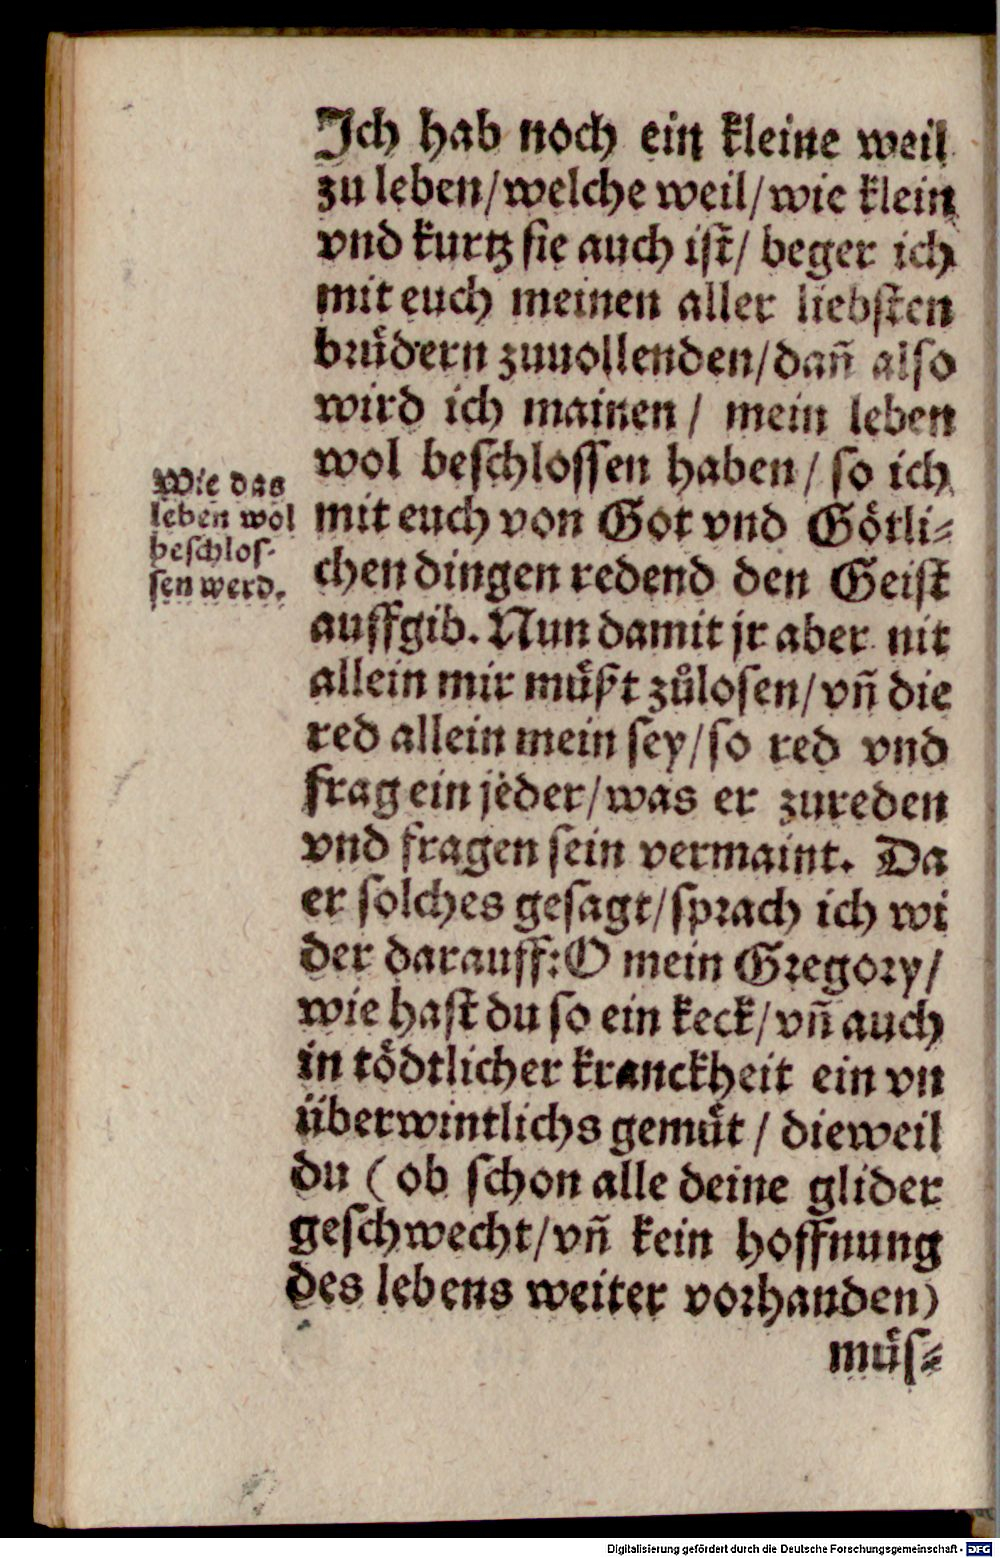 Ich hab noch ein kleine weil
zu leben/welche weil/wie klein
vnd kurtz sie auch ist/ beger ich
mit euch meinen aller liebsten
bruͤdern zuuollenden/dañ also
wird ich mainen / mein leben
wol beschlossen haben / so ich
mit euch von Got vnd Goͤtli-
chen dingen redend den Geist
auffgib. Nun damit jr aber nit
allein mir muͤßt zuͦlosen/vñ die
red allein mein sey/so red vnd
frag ein jeder/was er zureden
vnd fragen sein vermaint. Da
er solches gesagt/sprach ich wi
der darauff: O mein Gregory/
wie hast du so ein keck/vñ auch
in toͤdtlicher kranckheit ein vn
überwintlichs gemuͤt / dieweil
du ( ob schon alle deine glider
geschwecht/vñ kein hoffnung
des lebens weiter vorhanden)
muͤs-
Wie das
leben wol
beschlos-
sen werd.
Digitalisierung gefördert durch die Deutsche Forschungsgemeinschaft - DFG